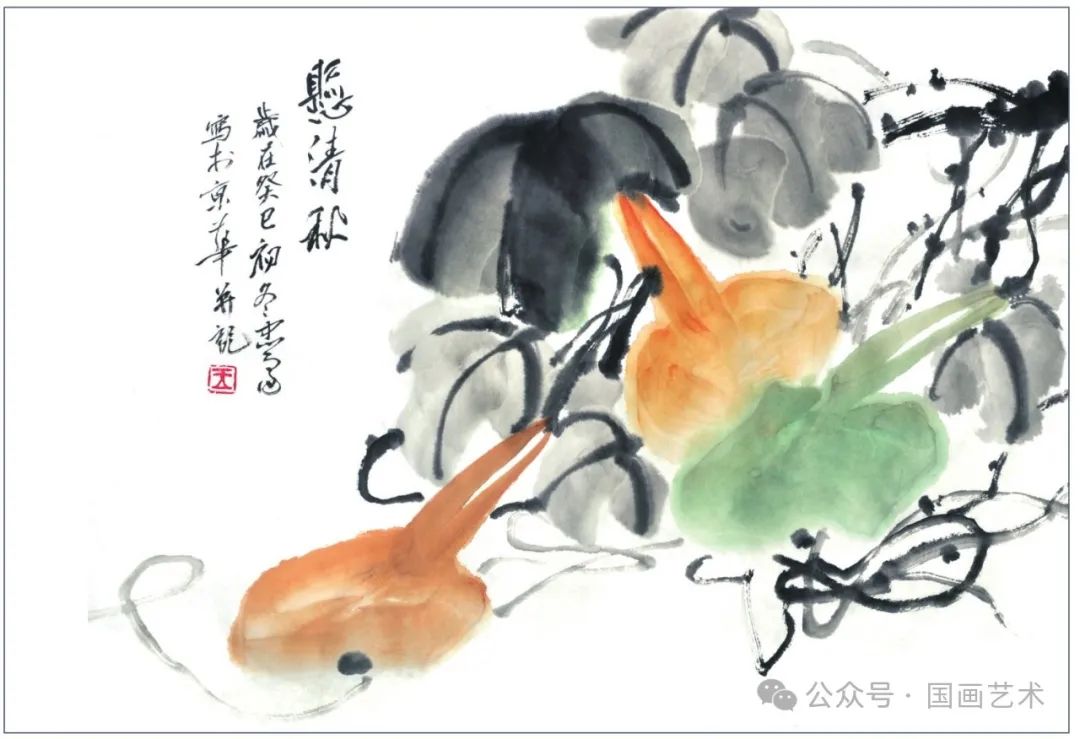 懸清秋
歲在癸巳初冬忠
寫於京華并記
公众号·国画艺术